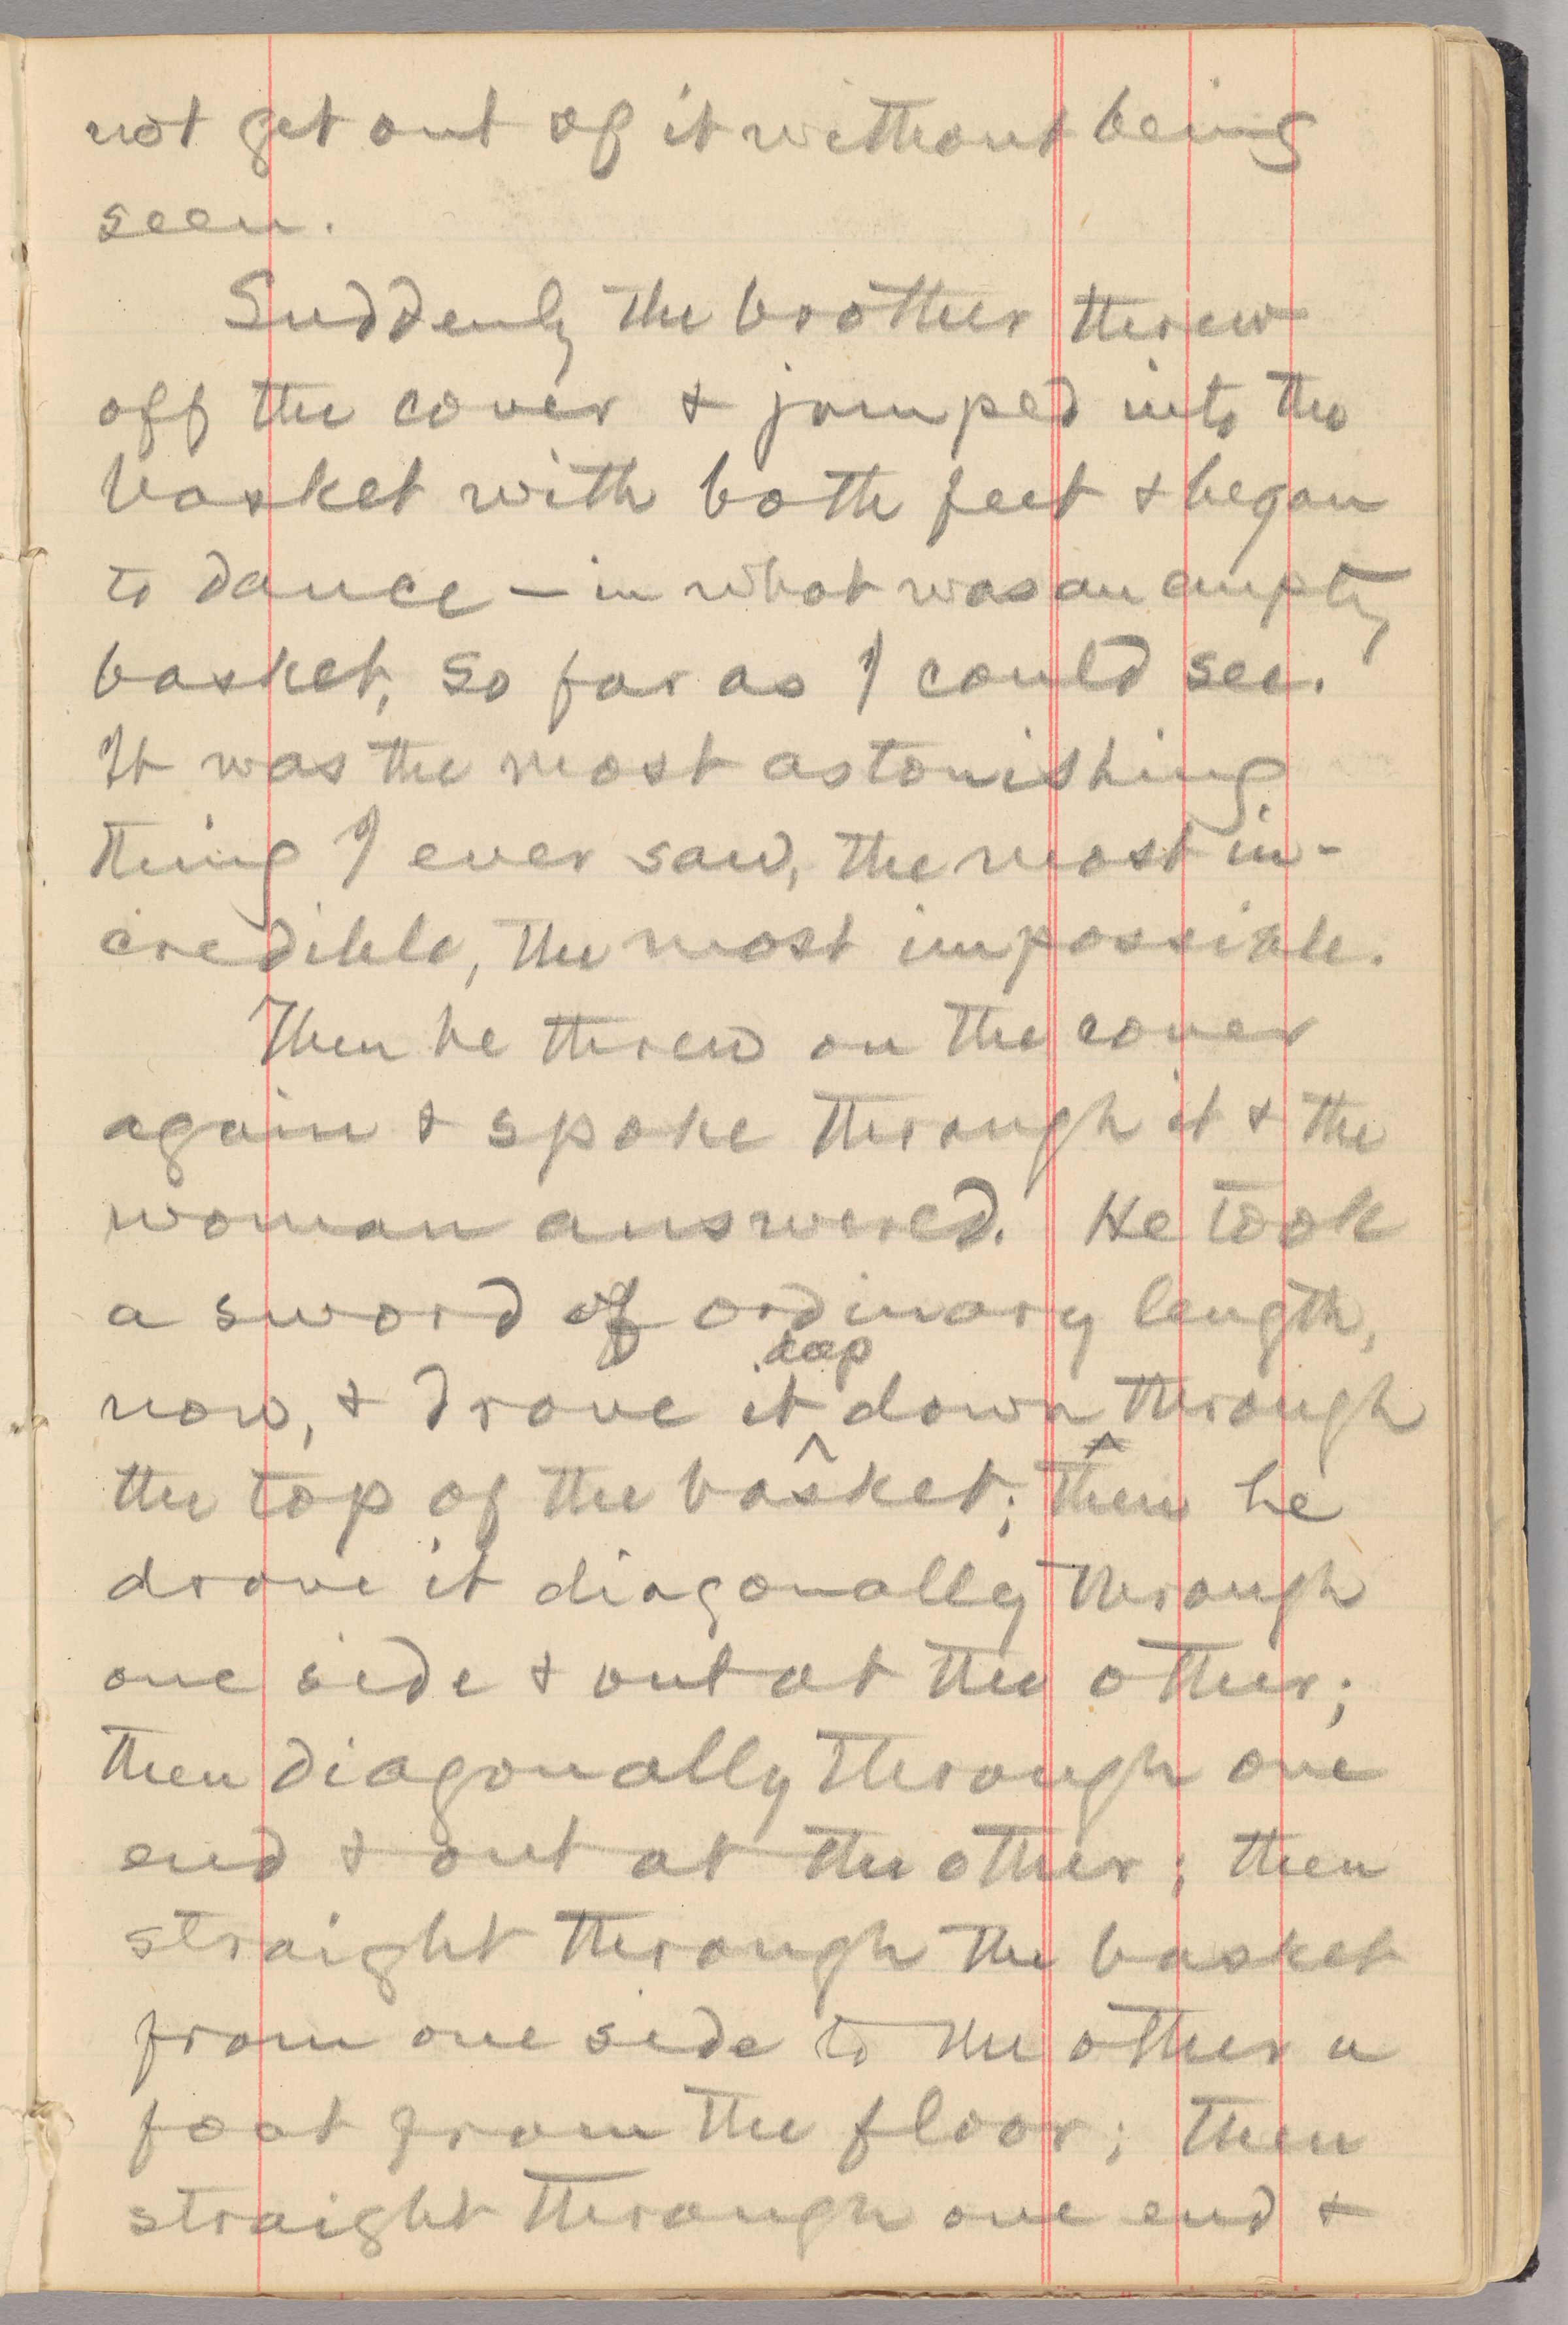 not get out of it without being
seen.
Suddenly the brother threw
off the cover & jumped into the
basket with both feet & began
to dance — in what was an empty
basket, so far as I could see.
It was the most astonishing
thing I ever saw, the most in-
credible, the most impossible.
Then he threw on the cover
again & spoke through it & the
woman answered. He took
a sword of ordinary length,
deep
now, & drove it down through
the top of the basket; then he
drove it diagonally through
one side & out at the other;
then diagonally through one
end & out at the other; then
straight through the basket
from one side to the other a
foot from the floor; then
straight through one end &